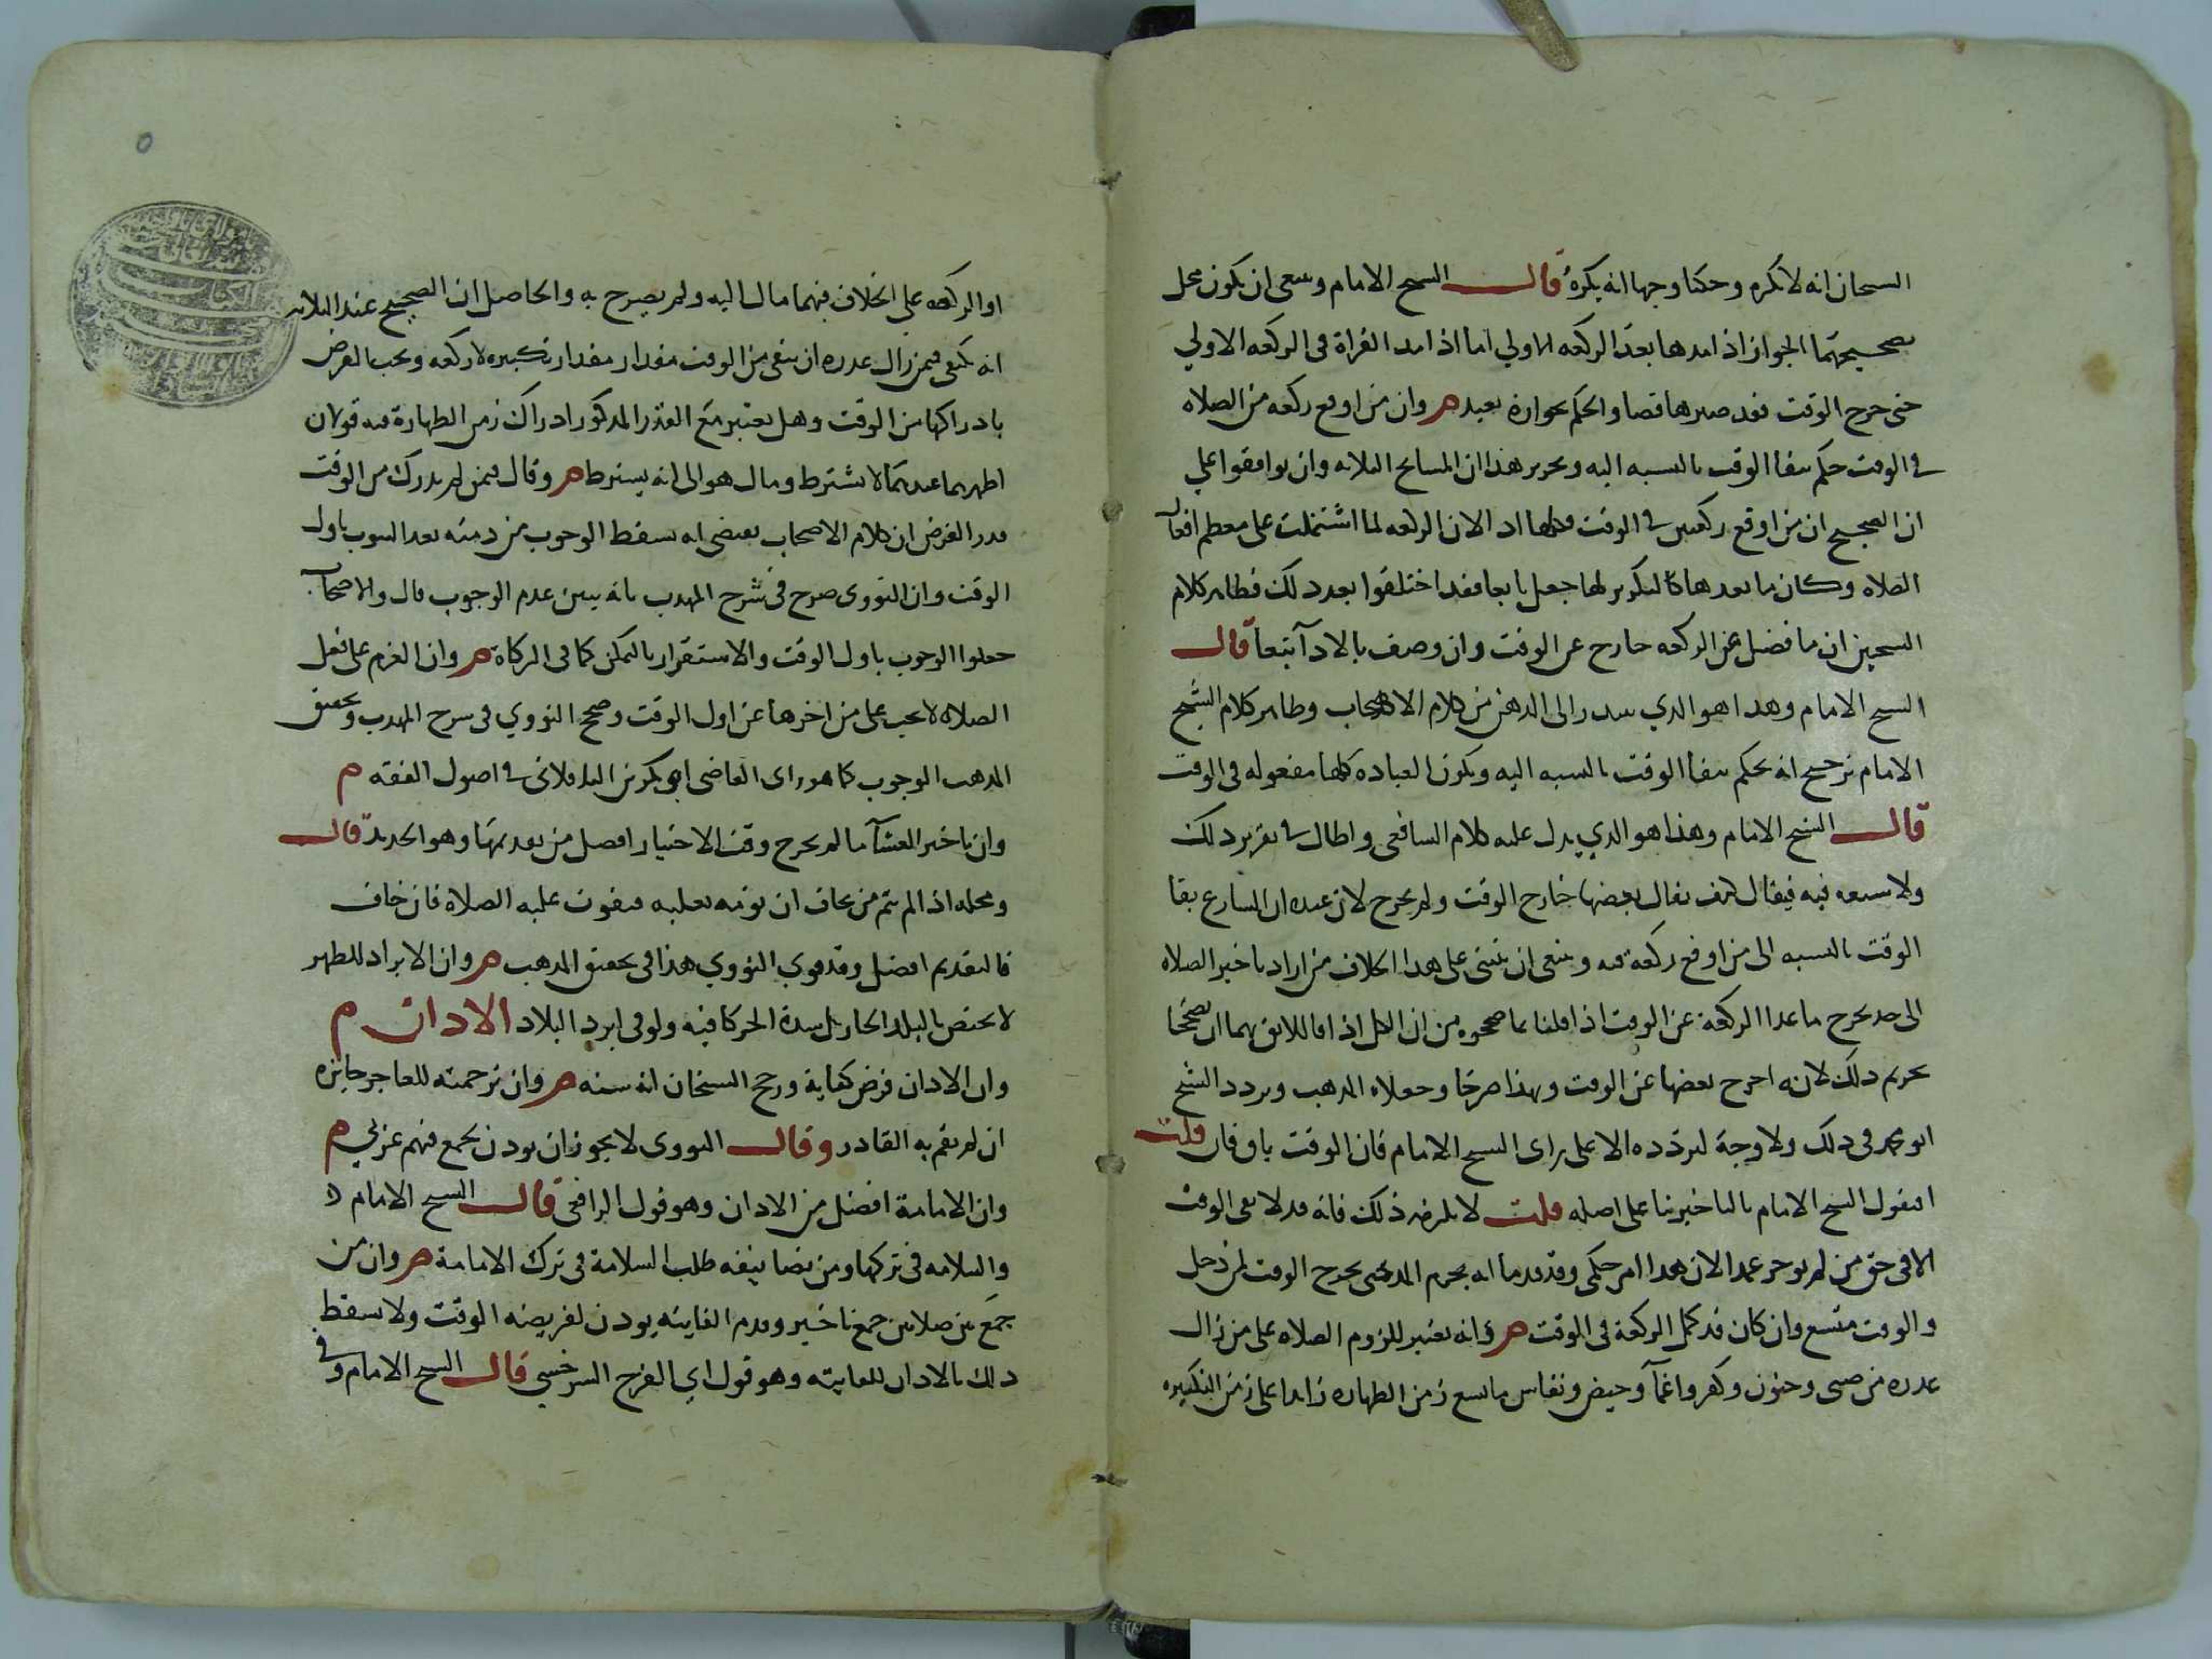 الشيخان انه لا يكره وحكيا وجها انه يكره قال الشيخ الامام وينبغي ان يكون محل
تصحيحهما الجواز اذا مدها بعد الركعه الاولي اما اذا مد القراة في الركعه الاولي
حتى خرج الوقت فقد صيرها قضا والحكم بجوازه بعيد وان من اوقع ركعه من الصلاه
في الوقت حكم ببقا الوقت بالنسبه اليه وتحرير هذا ان المشايخ الثلاثه وان توافقوا علي
ان الصحيح ان من اوقع ركعتين في الوقت فكلها ادا لان الركعه لما اشتملت على معظم افعال
الصلاه وكان ما بعدها كالتكرير لها جعل تابعا فقد اختلفوا بعد ذلك فظاهر كلام
الشيخين ان ما فضل عن الركعه خارج عن الوقت وان وصف بالادآ تبعا قال
الشيخ الامام وهذا هو الذي يبتدر الى الذهن من كلام الاصحاب وظاهر كلام الشيخ
الامام ترجيح انه يحكم ببقا الوقت بالنسبه اليه ويكون العباده كلها مفعوله في الوقت
قال الشيخ الامام وهذا هو الذي يدل عليه كلام الشافعي واطال في تقرير ذلك
ولا يسعه فيه فيقال كيف يقال بعضها خارج الوقت ولم يخرج لان عنده ان الشارع بقا
الوقت بالنسبه الى من اوقع ركعة فيه وينبغي ان ينبني على هذا الخلاف من اراد تاخير الصلاه
الى حد يخرج ما عدا الركعة عن الوقت اذا قلنا بما صححوه من ان الكل ادا فاللائق بهما ان يصححا
تحريم ذلك لانه اخرج بعضها عن الوقت وبهذا صرحا وجعلاه المذهب وتردد الشيخ
ابو محمد في ذلك ولا وجه لتردده الا على راى الشيخ الامام فان الوقت باق فان قلت
افيقول الشيخ الامام بالتاخير بنا على اصله قلت لا يلزمه ذلك فانه قد لا يبقى الوقت
الا في حق من لم يوخر عمدا لان هذا امر حكمي وقد قدمنا انه يحرم المد حتى يخرج الوقت لمن دخل
والوقت متسع وان كان قد كمل الركعة في الوقت وانه يعتبر للزوم الصلاه على من زال
عذره من صبى وجنون وكفر واغمآ وحيض ونفاس ما يسع زمن الطهاره زايدا على زمن التكبيره
او الركعه على الخلاف فيهما مال اليه ولم يصرح به والحاصل ان الصحيح عند الثلاثه
انه يكفي فيمن زال عذره ان يبقى من الوقت مقدار مقدار تكبيره لا ركعه ويجب الفرض
بادراكها من الوقت وهل يعتبر مع القدر المذكور ادراك زمن الطهارة فيه قولان
اظهرهما عندهما لا يشترط ومال هو الى انه يشترط وقال فيمن لم يدرك من الوقت
قدر الفرض ان كلام الاصحاب يقتضي انه يسقط الوجوب من ذمته بعد الثبوت باول
الوقت وان النووى صرح في شرح المهذب بانه يتبين عدم الوجوب قال والاصحاب
جعلوا الوجوب باول الوقت والاستقرار بالتمكن كما في الزكاة وان العزم على فعل
الصلاه لا يجب على من اخرها عن اول الوقت وصحح النووي في شرح المهذب وتحقيق
المذهب الوجوب كما هو راى القاضي ابو بكر بن الباقلاني في اصول الفقه م
وان تاخير العشآ ما لم يخرج وقت الاختيار افضل من تقديمها وهو الجديد قال
ومحله اذا لم يتم من يخاف ان نومه يغلبه فيفوت عليه الصلاة فان خاف
فالتقديم افضل وقد قوي النووي هذا في تحقيق المذهب وان الابراد للظهر
لا يختص بالبلد الحار بل شدة الحر كافيه ولو في ابرد البلاد الاذان م
وان الاذان فرض كفاية ورجح الشيخان انه سنه وان ترجمته للعاجز جايزه
ان لم يقم به القادر وقال النووى لا يجوز ان يوذن لجمع فيهم عربي م
وان الامامة افضل من الاذان وهو قول الرافعي قال الشيخ الامام
والسلامه في تركها ومن تصانيفه طلب السلامة في ترك الامامة وان من
جمع بين صلاتين جمع تاخير وقدم الفايته يوذن لفريضه الوقت ولا يسقط
ذلك بالاذان للفايته وهو قول ابي الفرج السرخسي قال الشيخ الامام وفي